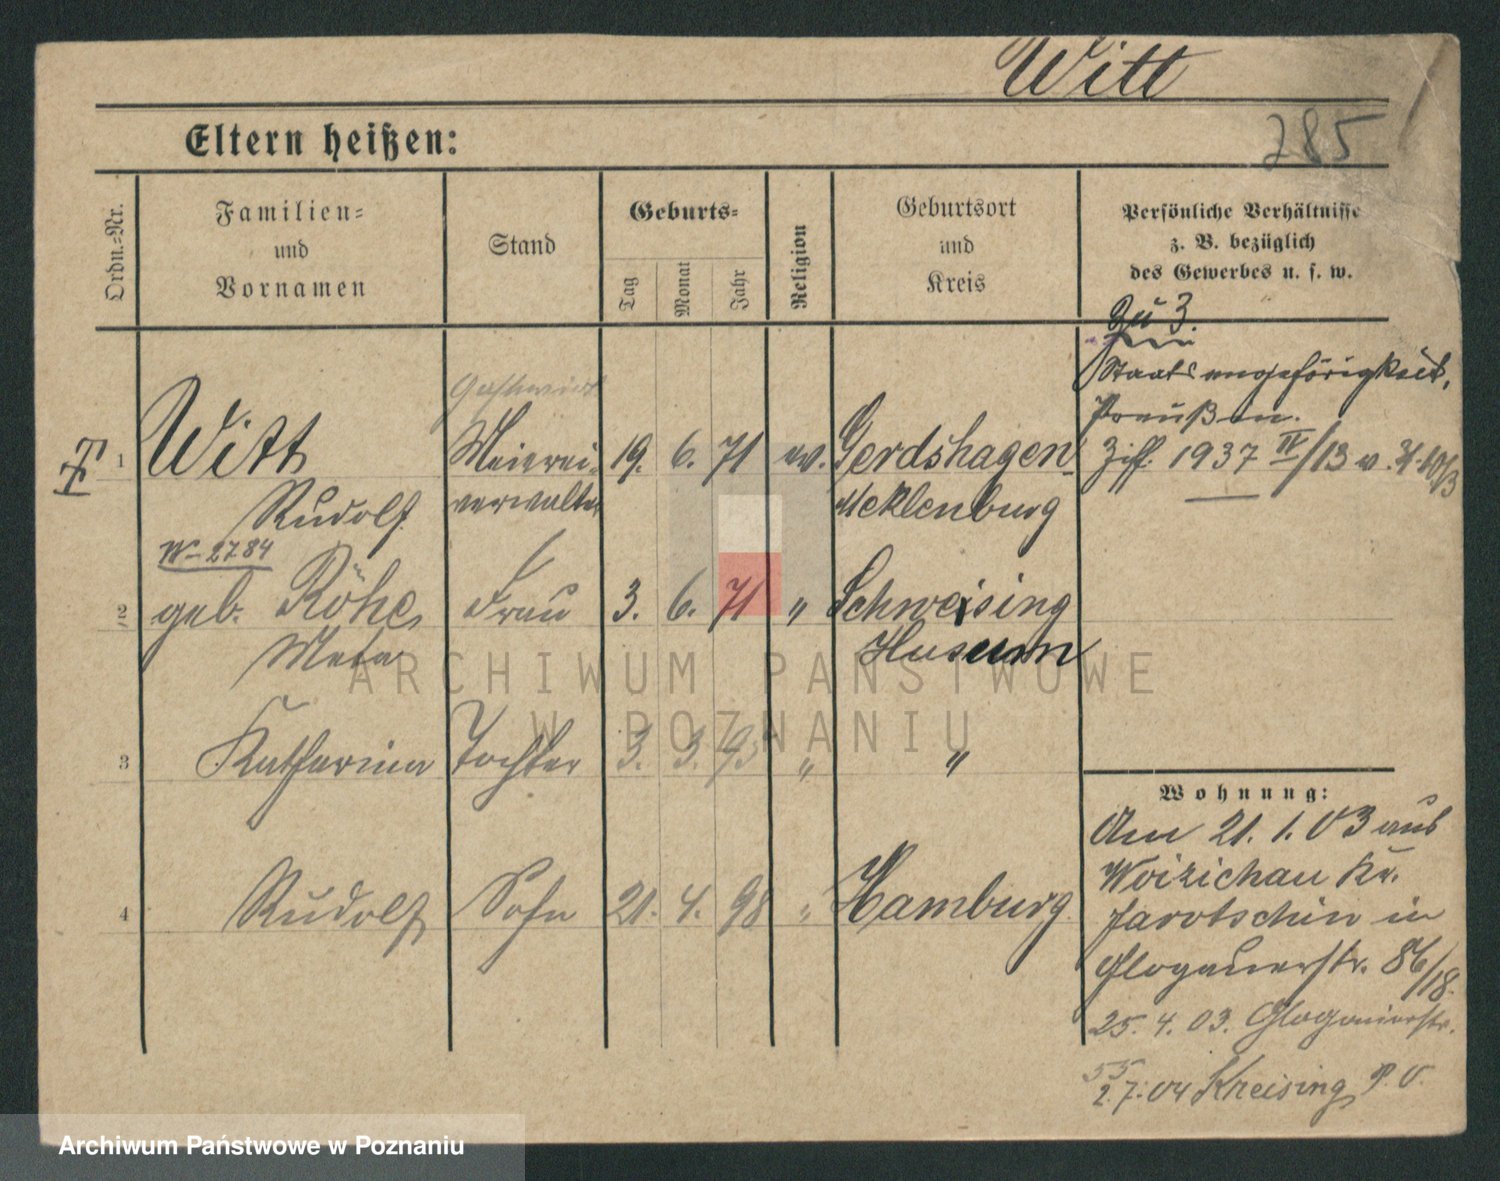 Witt
285
Eltern heißen:
Ordn.-Nr.
Familien-
und
Vornamen
Stand
Geburts-
Tag
Monat
Jahr
Religion
Geburtsort
und
Kreis
Persönliche Verhältnisse
z. B. bezüglich
des Gewerbes u. s. w.
Zu 3.
Staatsangehörigkeit,
Preußen.
Ziff. 1937 IV/13 v.
Gastwirt
1 Witt Meierei- 19. 6. 71 ev. Gerdshagen
Rudolf verwalter Mecklenburg
W-2784
2 geb. Röhe Frau 3. 6. 71 " Schweising
Meta Husum
3 Katharina Tochter 3. 3. 93 " "
4 Rudolf Sohn 21. 4. 98 " Hamburg
Wohnung:
Am 21. 1. 03 aus
Woizichau Kr.
Jarotschin in
Glogauerstr. 86/18.
25. 4. 03. Glogauerstr.
55
2. 7. 04 Kreising P. O.
ARCHIWUM PAŃSTWOWE
W POZNANIU
Archiwum Państwowe w Poznaniu